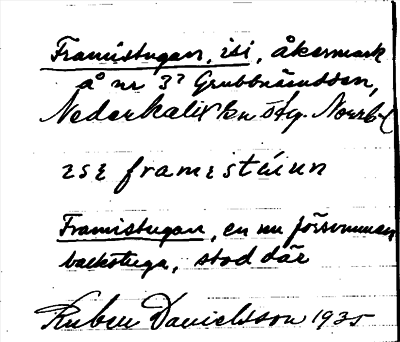 Framistugan, isi, åkermark
å nr 3? Grubbnäsudden,
Nederkalix sn Norrb.
framistúun
Framistugan, en nu försvunnen
backstuga, stod där
Ruben Danielsson 1935